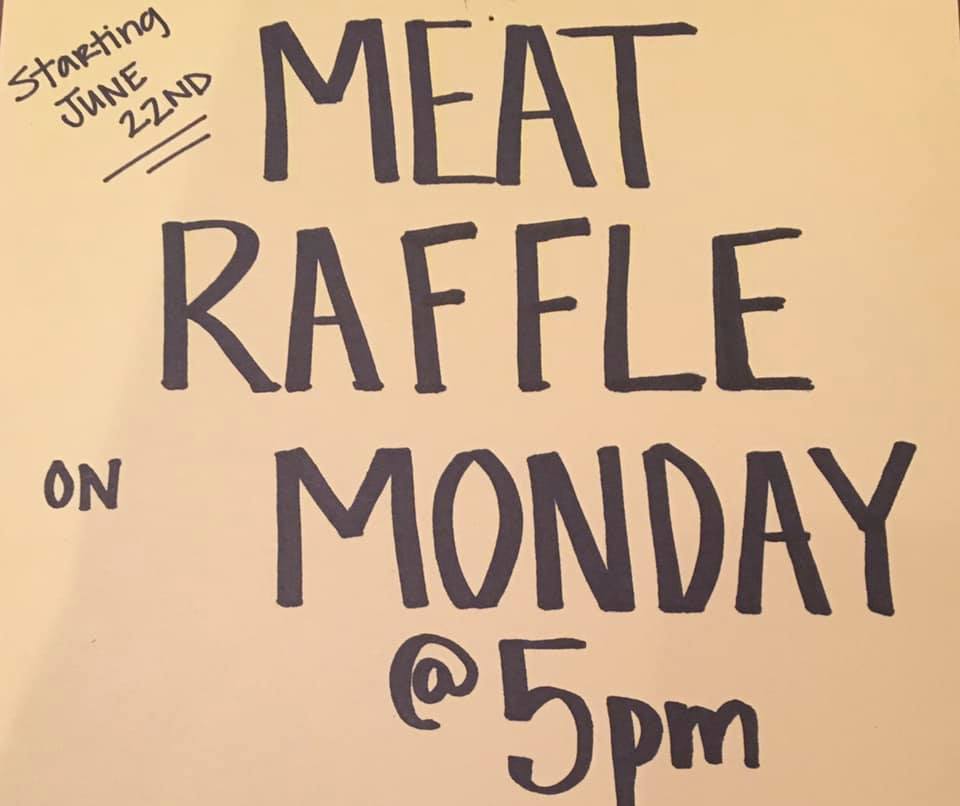 Starting
JUNE
22ND
MEAT
RAFFLE
ON MONDAY
@ 5pm